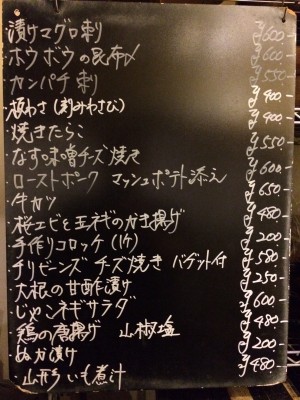 漬けマグロ刺 ¥600.
ホウボウの昆布〆 ¥600
カンパチ刺 ¥550
板わさ(刻みわさび) ¥400.
焼きたらこ ¥400.
なす味噌チーズ焼き ¥550
ローストポーク マッシュポテト添え ¥600.
牛カツ ¥650.
桜エビと玉ネギのかき揚げ ¥480
手作りコロッケ(1ケ) ¥200
チリビーンズ チーズ焼き バゲット付 ¥580
大根の甘酢漬け ¥250
じゃこネギサラダ ¥600
鶏の唐揚げ 山椒塩 ¥480
ぬか漬け ¥200
山形いも煮汁 ¥480